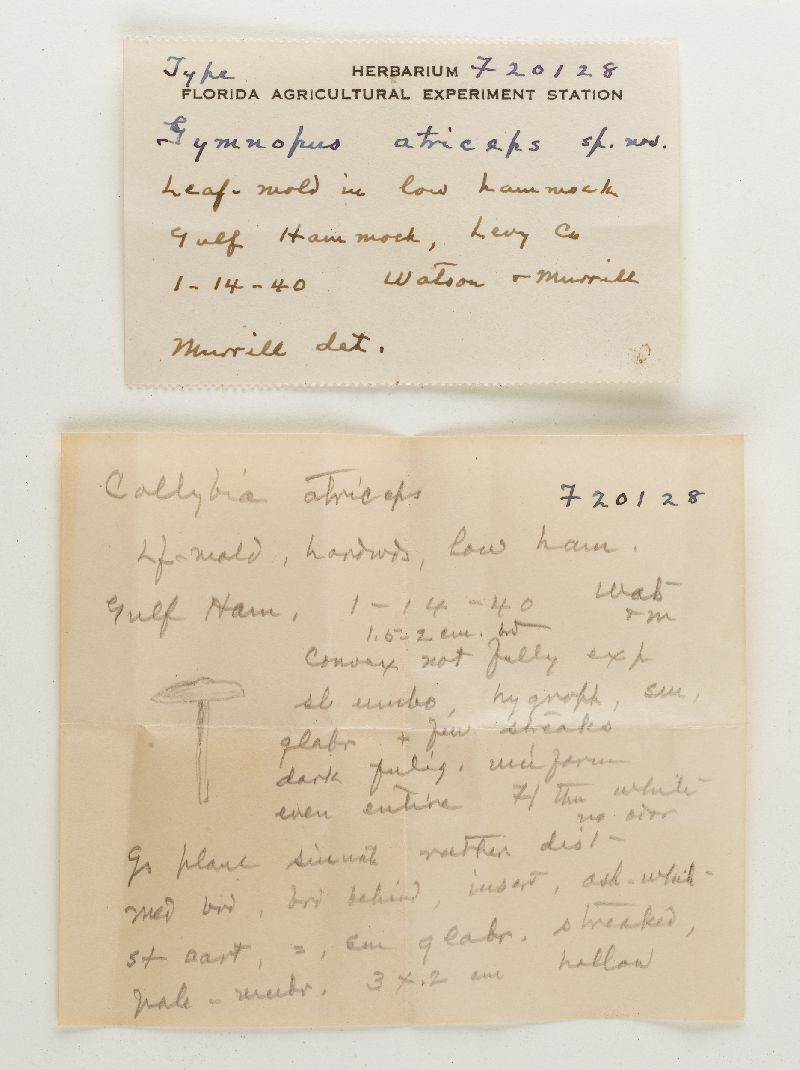 Type HERBARIUM F 20128
FLORIDA AGRICULTURAL EXPERIMENT STATION
Gymnopus atriceps sp. nov.
Leaf-mold in low hammock
Gulf Hammock, Levy Co
1-14-40 Watson + Murrill
Murrill det.
Collybia atriceps F 20128
Lf-mold, hardwds, low ham.
Gulf Ham. 1-14-40 Wats
+ M
1.5-2 cm. bd
Convex not fully exp
sl umbo, hygroph, sm,
glabr + fin streaks
dark fulig. uniform
even entire Fl thn white
no odor
Gs plane sinuate rather dist
med brd, brd behind, insert, ash-whit
st cart, =, sm glabr. streaked,
pale-umbr. 3 x .2 cm hollow